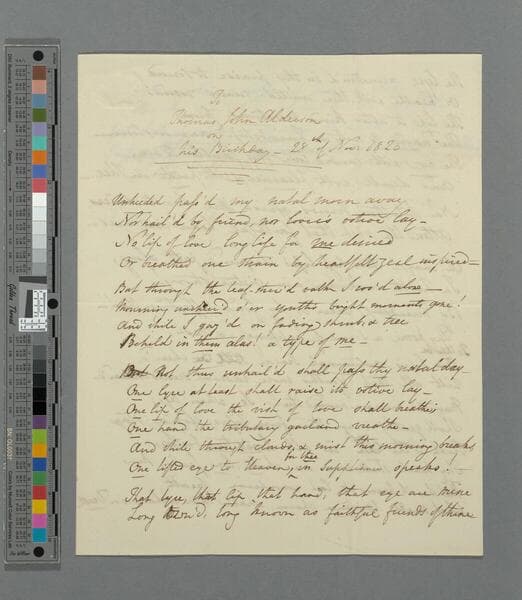 To
Thomas John Alderson
on
his Birthday - 28th of Nov. 1820
Unheeded pass'd my natal morn away
Nor hail'd by friend, nor love's votive lay -
No lip of love long life for me desired
Or breathed one strain by heartfelt zeal inspired -
But through the leaf-strew'd path I rov'd alone -
Mourning uncheer'd o'er youth's bright moments gone!
And while I gaz'd on fading shrub, & tree
Beheld in them alas! a type of me -
But Not thus unhail'd shall pass thy natal day
One lyre at least shall raise its votive lay
One lip of love the wish of love shall breathe
One hand the tributary garland wreathe -
And while through clouds, & mist this morning breaks
One lifted eye to Heaven, for thee in suppliance speaks! -
That lyre, that lip, that hand, that eye are mine
Long known as faithful friends of thine